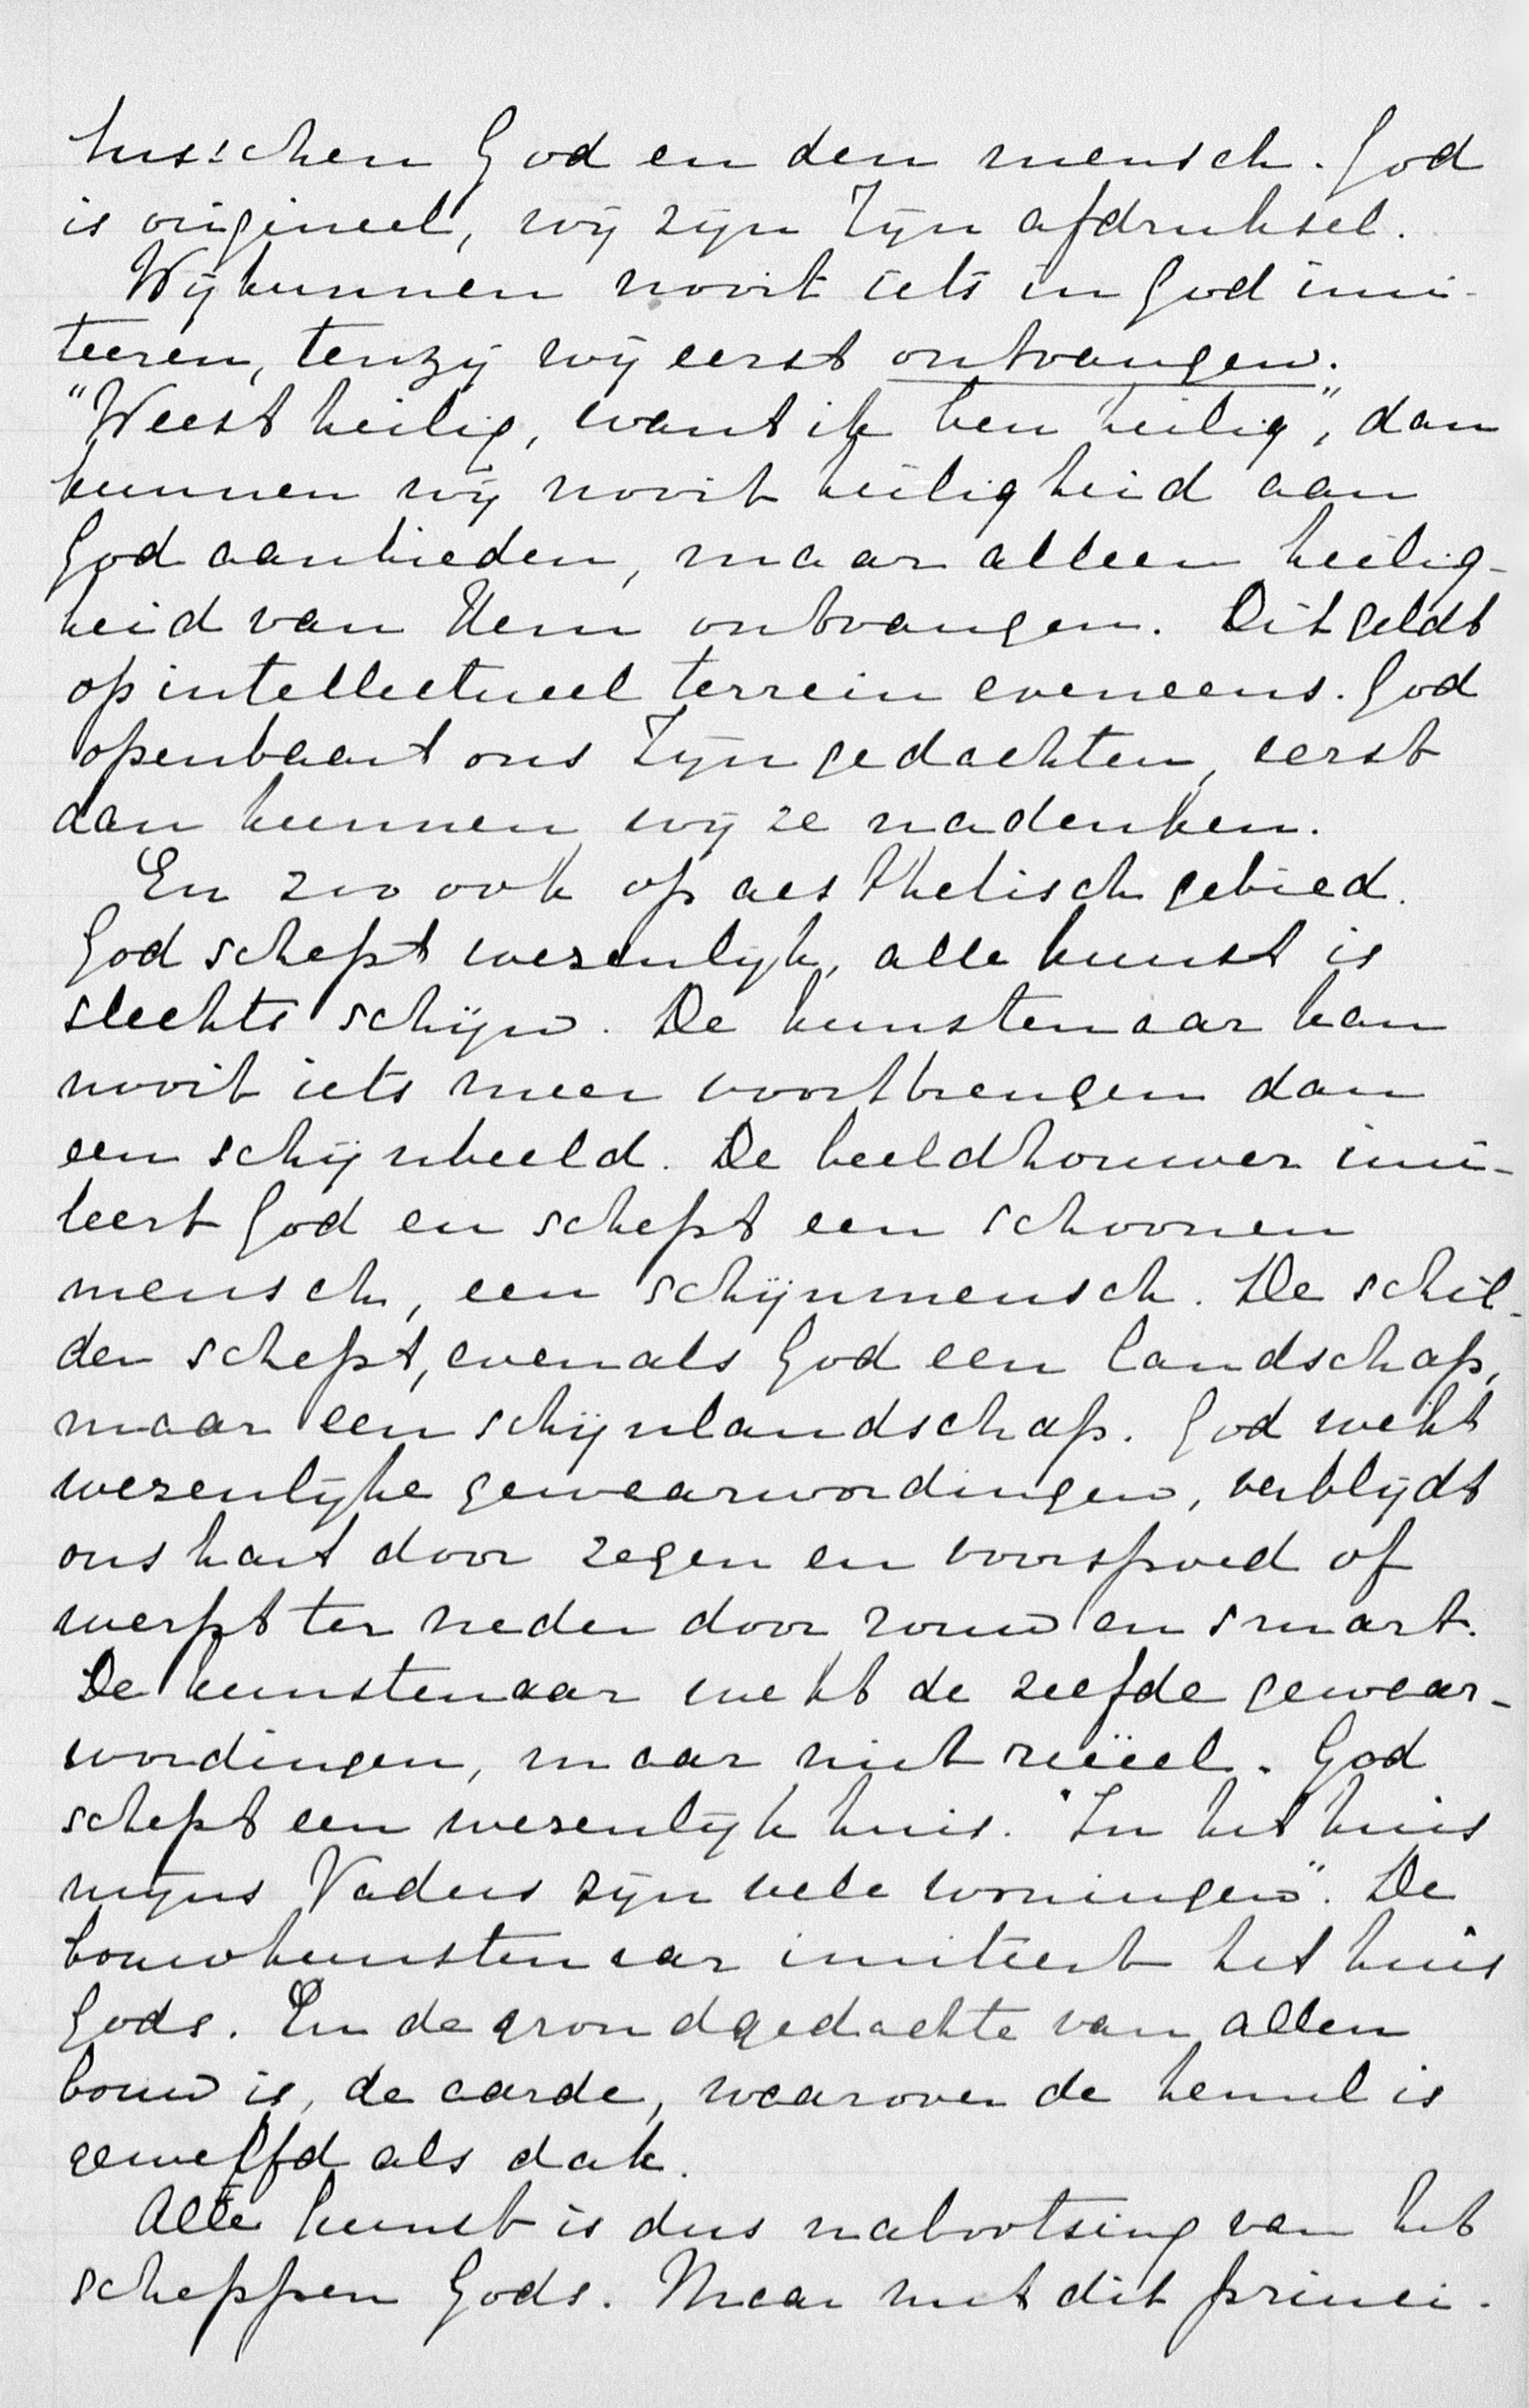 tusschen God en den mensch. God
is origineel, wij zijn Zijn afdruksel.
Wij kunnen nooit iets in God imi-
teeren, tenzij wij eerst ontvangen.
"Weest heilig, want ik ben heilig", dan
kunnen wij nooit heiligheid aan
God aanbieden, maar alleen heilig-
heid van Hem ontvangen. Dit geldt
op intellectueel terrein eveneens. God
openbaart ons Zijn gedachten, eerst
dan kunnen wij ze nadenken.
En zoo ook op aesthetisch gebied.
God schept wezenlijk, alle kunst is
slechts schijn. De kunstenaar kan
nooit iets meer voortbrengen dan
een schijnbeeld. De beeldhouwer imi-
teert God en schept een schoonen
mensch, een schijnmensch. De schil-
der schept, evenals God een landschap,
maar een schijnlandschap. God wekt
wezenlijke gewaarwordingen, verblijdt
ons hart door zegen en voorspoed of
werpt ter neder door rouw en smart.
De kunstenaar wekt de zelfde gewaar-
wordingen, maar niet reëel. God
schept een wezenlijk huis. "In het huis
mijns Vaders zijn vele woningen". De
bouwkunstenaar imiteert het huis
Gods. En de grondgedachte van allen
bouw is, de aarde, waarover de hemel is
gewelfd als dak.
Alle kunst is dus nabootsing van het
scheppen Gods. Maar met dit princi-